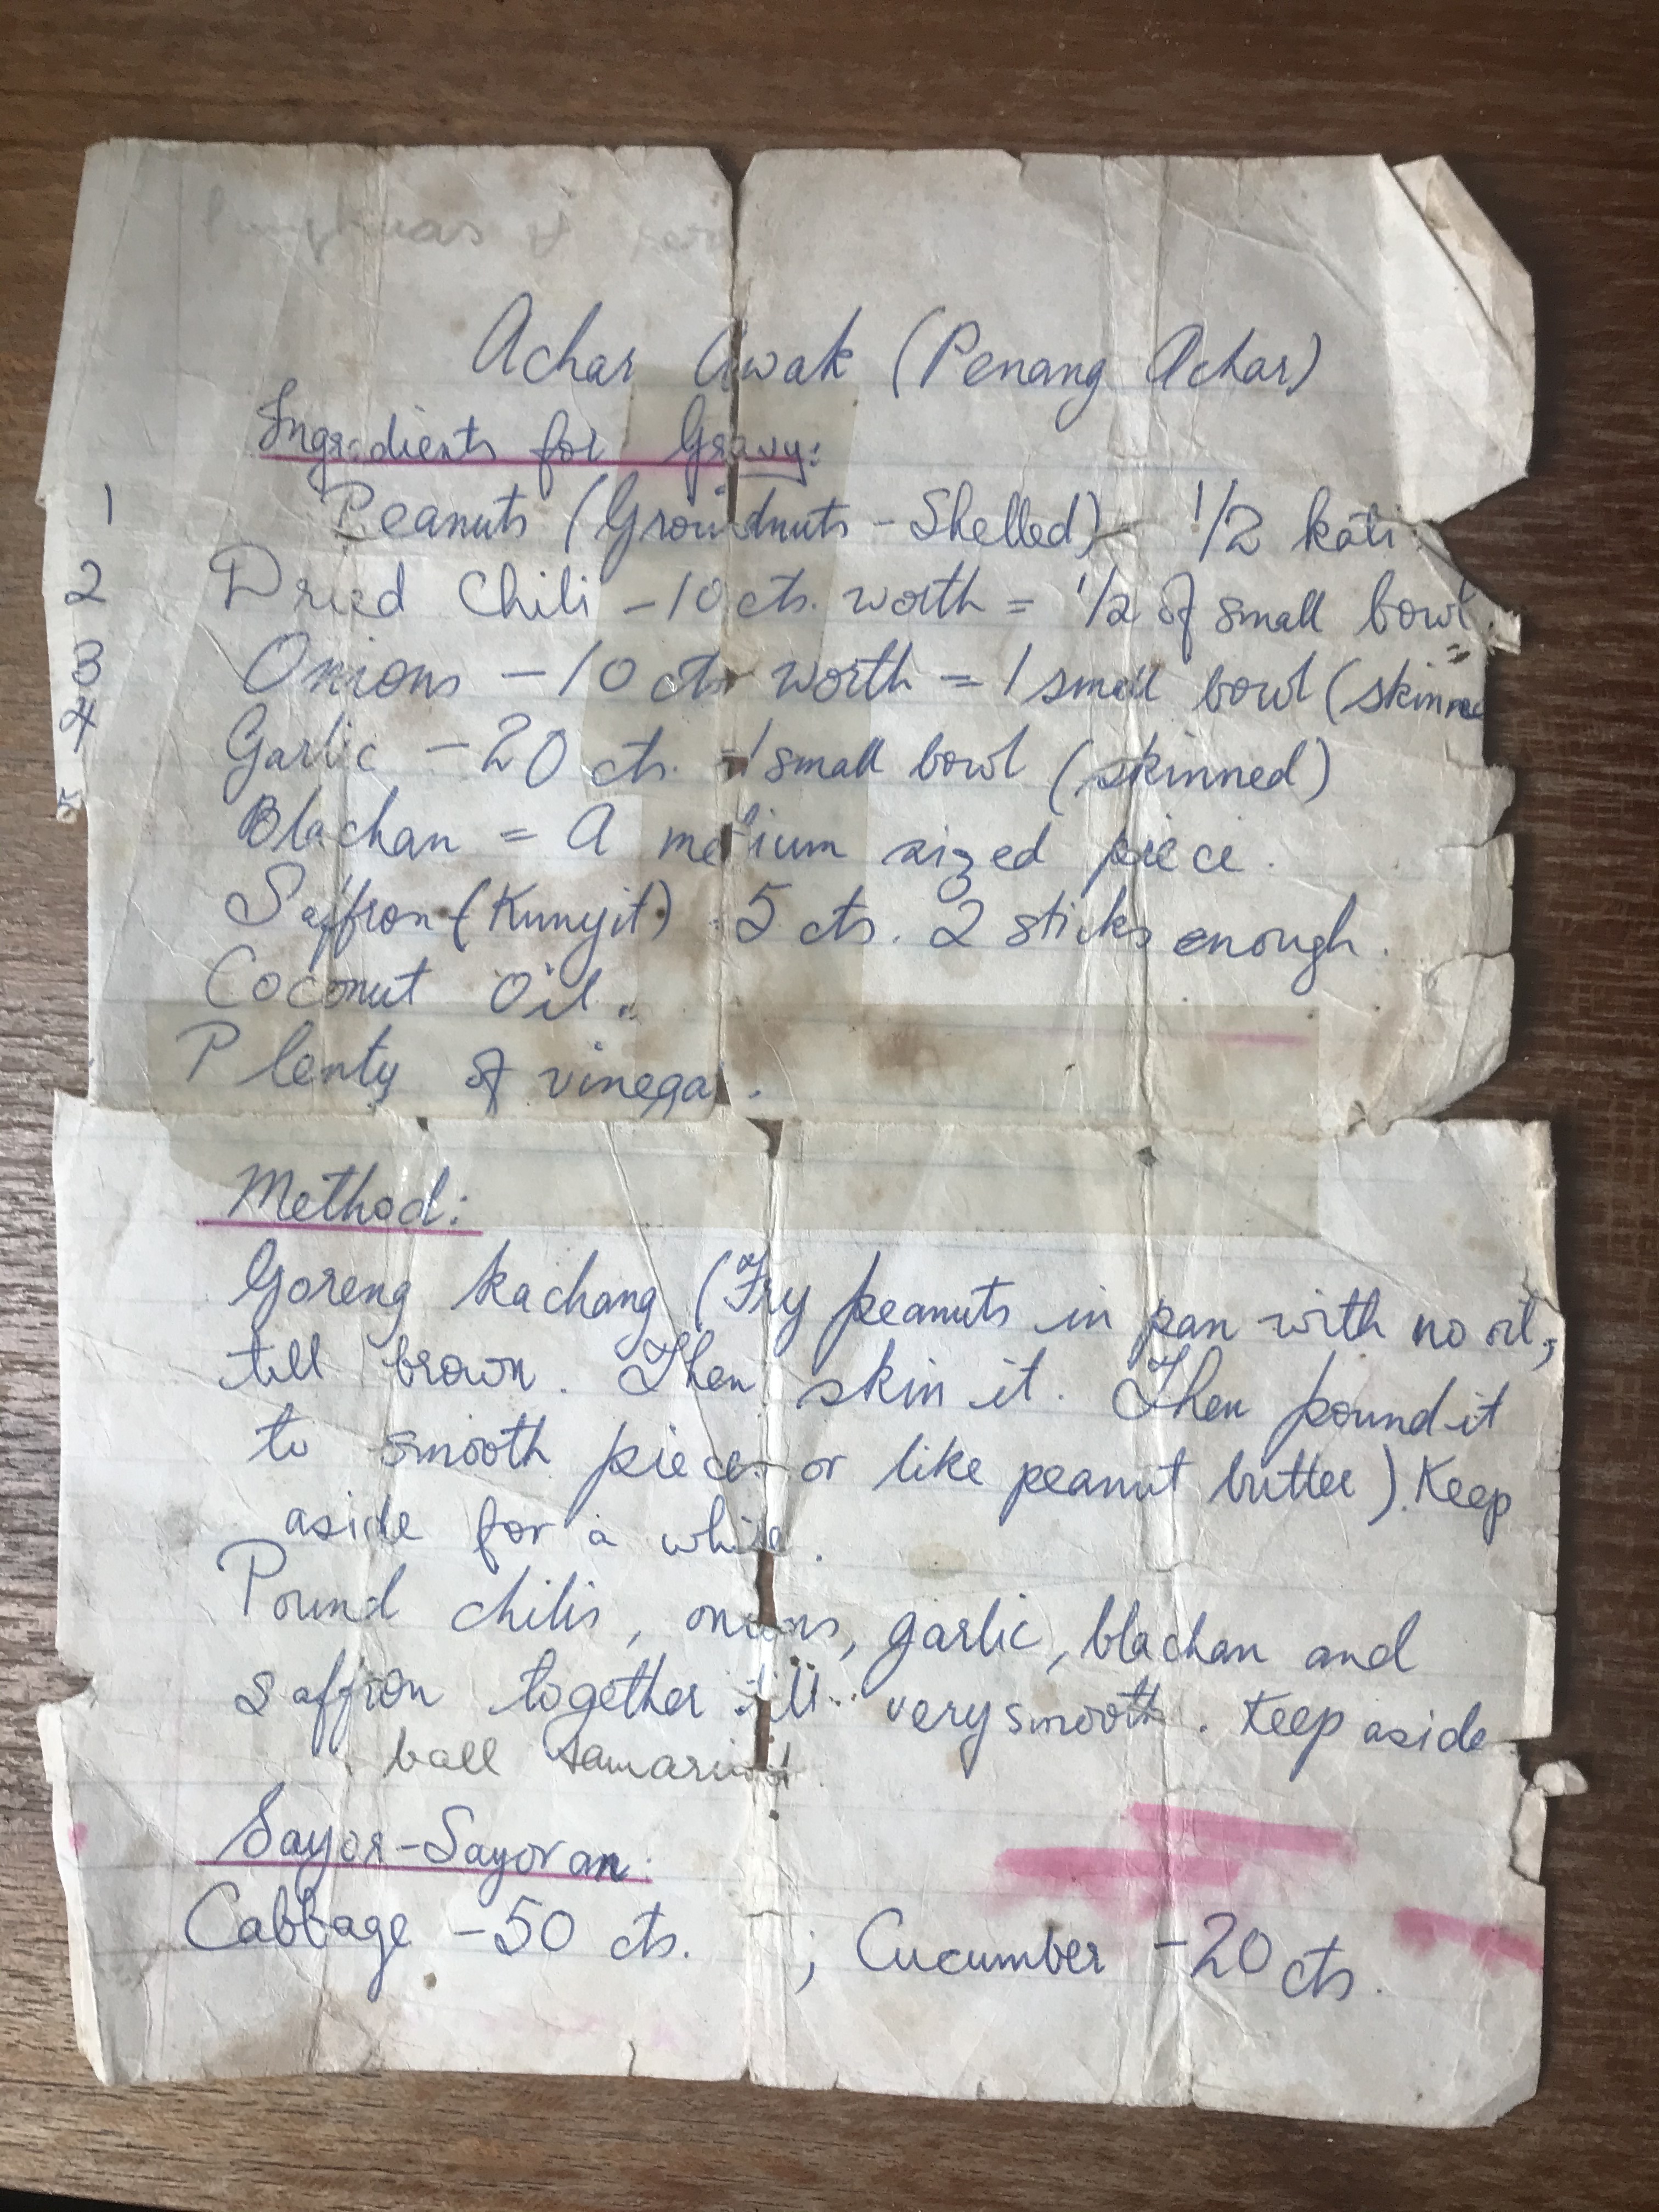 Achar Awak (Penang Achar)
Ingredients for Gravy:
1 Peanuts (Groundnuts - Shelled) - 1/2 kati
2 Dried Chili - 10 cts. worth = 1/2 of small bowl.
3 Onions - 10 cts worth = 1 small bowl (skinned
4 Garlic - 20 cts. = 1 small bowl (skinned)
5 Blachan = A medium sized piece.
Saffron (Kunyit) - 5 cts. 2 sticks enough.
Coconut Oil.
Plenty of vinegar.
Method:
Goreng kachang (Fry peanuts in pan with no oil,
till brown. Then skin it. Then pound it
to smooth pieces or like peanut butter). Keep
aside for a while.
Pound chilis, onions, garlic, blachan and
saffron together till very smooth. Keep aside
ball tamarind.
Sayor-Sayoran:
Cabbage - 50 cts. ; Cucumber - 20 cts.